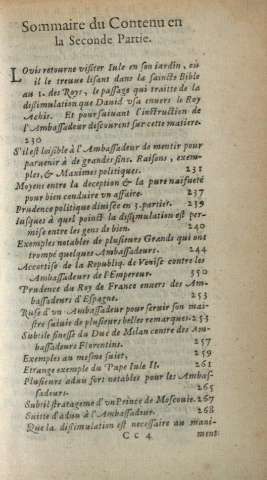 Sommaire du Contenu en
la Seconde Partie.
LOvis retourne visiter Iule en son iardin, où
il le treuue lisant dans la saincte Bible
au 1. des Roys, le passage qui traitte de la
dissimulation que Dauid vsa enuers le Roy
Achis. Et poursuiuant l'instruction de
l'Ambassadeur discourent sur cette matiere.
230
S'il est loisible à l'Ambassadeur de mentir pour
paruenir à de grandes fins. Raisons, exem-
ples, & Maximes politiques. 232
Moyens entre la deception & la pure naifueté
pour bien conduire vn affaire. 237
Prudence politique diuisee en 3. partier. 239
Iusques à quel poinct la dissimulation est per-
mise entre les gens de bien. 240
Exemples notables de plusieurs Grands qui ont
trompé quelques Ambassadeurs. 244
Accortise de la Republiq. de Venise contre les
Ambassadeurs de l'Empereur. 550
Prudence du Roy de France enuers des Am-
bassadeurs d'Espagne. 253
Ruse d'vn Ambassadeur pour seruir son mai-
stre suiuie de plusieurs belles remarques. 255
Subtile finesse du Duc de Milan contre des Am-
bassadeurs Florentins. 257
Exemples au mesme suiet, 259
Etrange exemple du Pape Iule II. 261
Plusieurs aduis fort notables pour les Ambas-
sadeurs. 265
Subtil stratageme d'vn Prince de Moscouie. 267
Suitte d'aduis à l'Ambassadeur. 268
Que la dissimulation est necessaire au mani-
Cc 4 ment